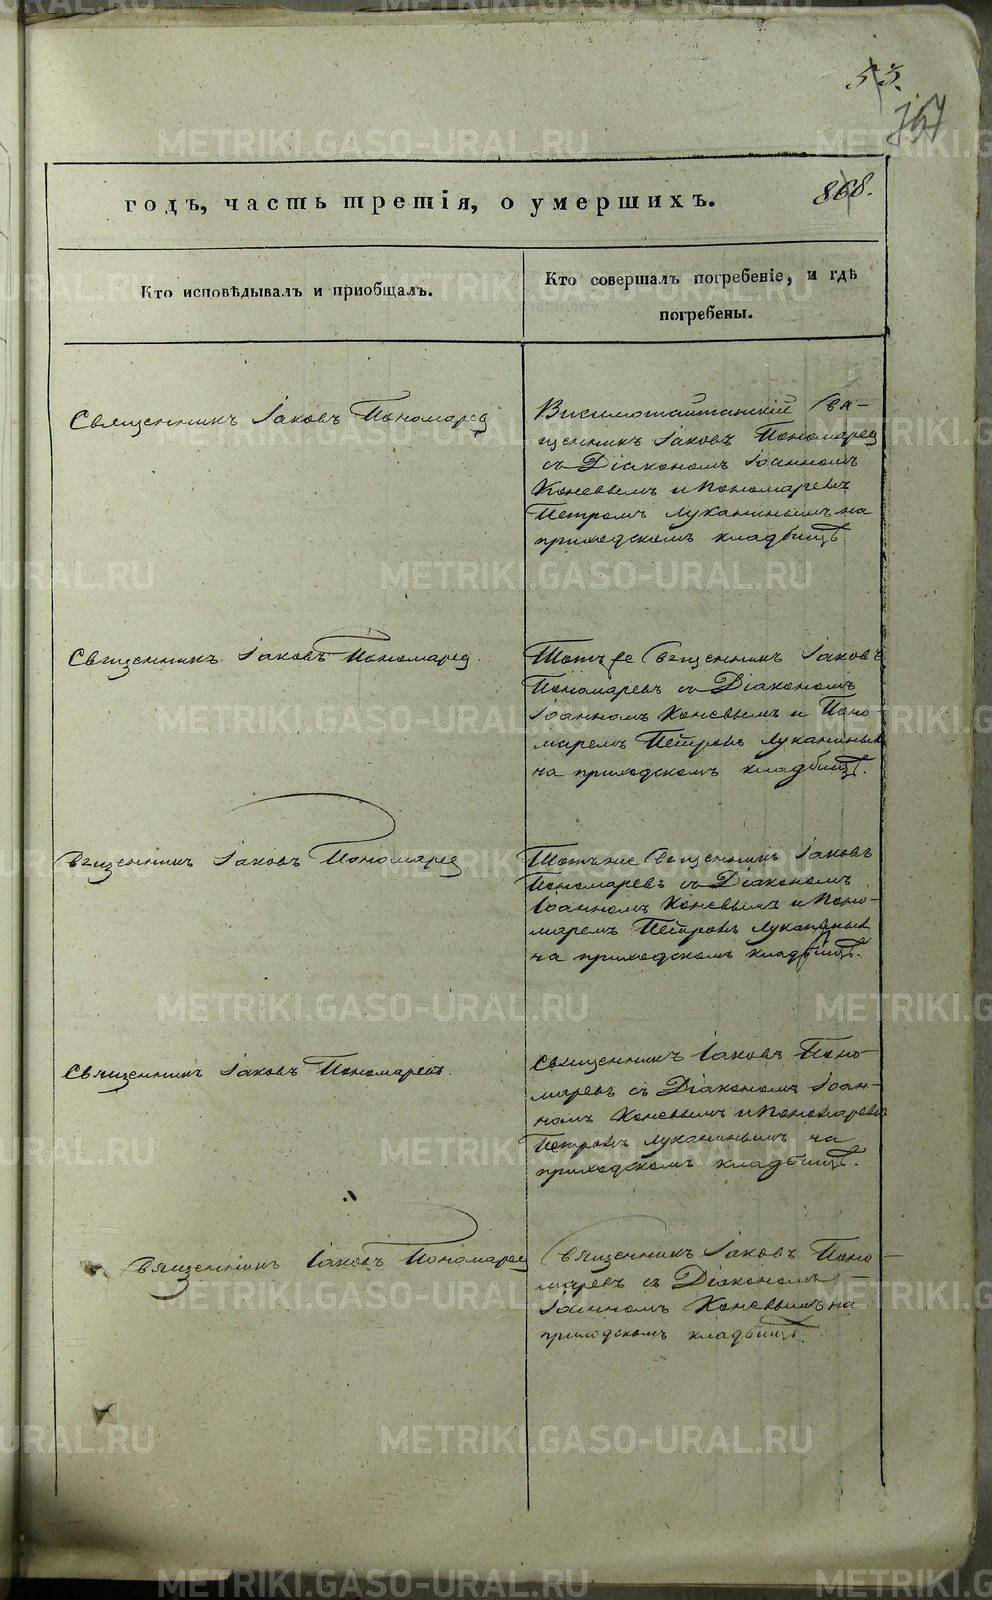 53.
757
годъ, часть третія, о умершихъ.
868.
Кто исповѣдывалъ и приобщалъ.
Кто совершалъ погребеніе, и гдѣ
погребены.
Священникъ Іаковъ Пономарев
Висимошайтанскій Свя-
щенникъ Іаковъ Пономарев
съ Діакономъ Іоанномъ
Коневымъ и Пономаремъ
Петромъ Луканинымъ на
приходскомъ кладбищѣ.
Священникъ Іаковъ Пономарев.
Тотъ же Священникъ Іаковъ
Пономаревъ съ Діакономъ
Іоанномъ Коневымъ и Поно-
маремъ Петромъ Луканинымъ
на приходскомъ кладбищѣ.
Священникъ Іаковъ Пономарев
Тотъ же Священникъ Іаковъ
Пономаревъ съ Діакономъ
Іоанномъ Коневымъ и Поно-
маремъ Петромъ Луканинымъ
на приходскомъ кладбищѣ.
Священникъ Іаковъ Пономаревъ.
Священникъ Іаковъ Поно-
маревъ съ Діакономъ Іоан-
номъ Коневымъ и Пономаремъ
Петромъ Луканинымъ на
приходскомъ кладбищѣ.
Священникъ Іаковъ Пономарев
Священникъ Іаковъ Поно-
маревъ съ Діакономъ
Іоанномъ Коневымъ на
приходскомъ кладбищѣ.
METRIKI.GASO-URAL.RU